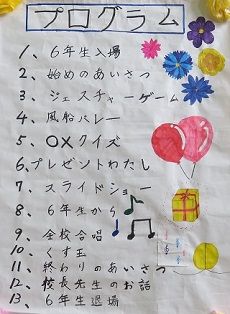 プログラム
1、6年生入場
2、始めのあいさつ
3、ジェスチャーゲーム
4、風船バレー
5、○×クイズ
6、プレゼントわたし
7、スライドショー
8、6年生から
9、全校合唱
10、くす玉
11、終わりのあいさつ
12、校長先生のお話
13、6年生退場